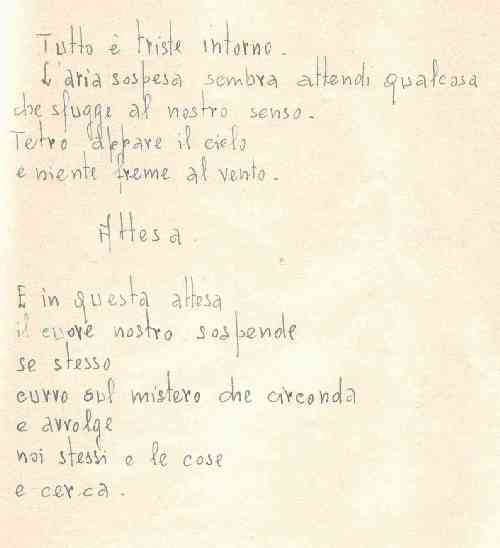 Tutto è triste intorno.
L'aria sospesa sembra attendi qualcosa
che sfugge al nostro senso.
Tetro appare il cielo
e niente freme al vento.
Attesa.
E in questa attesa
il cuore nostro sospende
se stesso
curvo sul mistero che circonda
e avvolge
noi stessi e le cose
e cerca.